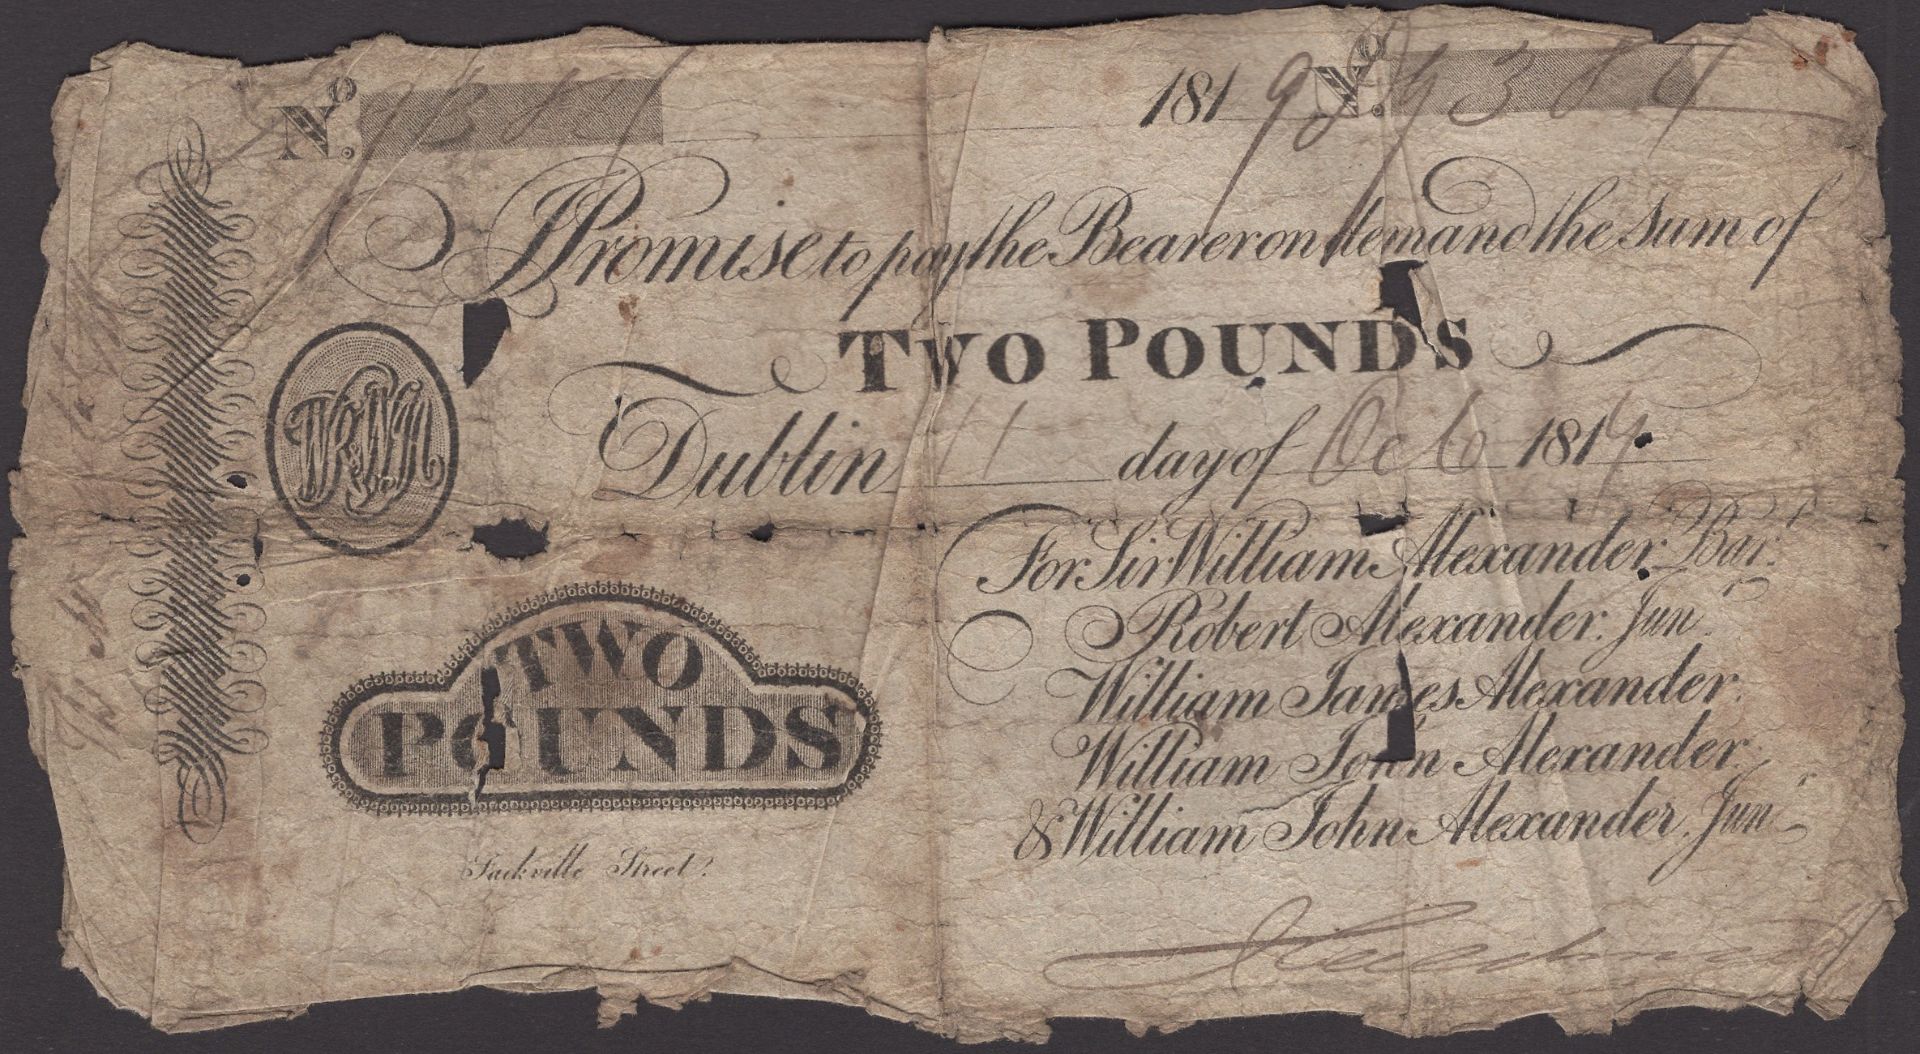 No.
1819 No. 9384
I Promise to pay the Bearer on demand the Sum of
TWO POUNDS
Dublin 11 day of Oct 1819
For Sir William Alexander Bart.
Robert Alexander Junr.
William James Alexander.
William John Alexander.
& William John Alexander Junr.
TWO
POUNDS
Sackville Street.